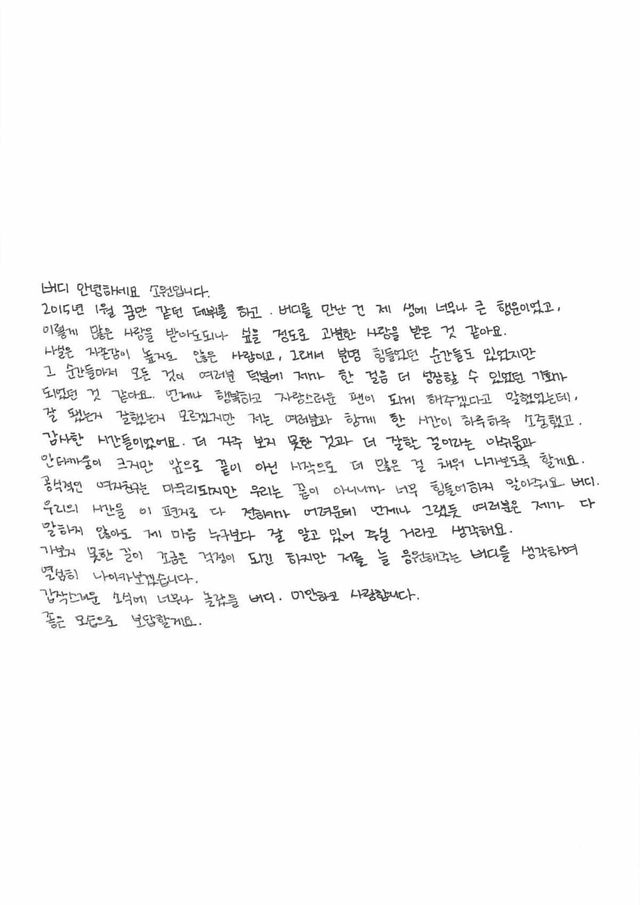 버디 안녕하세요 소원입니다.
2015년 1월 꿈만 같던 데뷔를 하고. 버디를 만난 건 제 생에 너무나 큰 행운이었고,
이렇게 많은 사랑을 받아도되나 싶을 정도로 과분한 사랑을 받은 것 같아요.
사실은 자존감이 높지도 않은 사람이고, 그래서 분명 힘들었던 순간들도 있었지만
그 순간들마저 모든 것이 여러분 덕분에 제가 한 걸음 더 성장할 수 있었던 기회가
되었던 것 같아요. 언제나 행복하고 자랑스러운 팬이 되게 해주겠다고 말했었는데,
잘 됐는지 잘했는지 모르겠지만 저는 여러분과 함께 한 시간이 하루하루 소중했고.
감사한 시간들이었어요. 더 자주 보지 못한 것과 더 잘할 걸이라는 아쉬움과
안타까움이 크지만 앞으로 끝이 아닌 시작으로 더 많은 걸 채워 나가보도록 할게요.
공식적인 여자친구는 마무리되지만 우리는 끝이 아니니까 너무 힘들어하지 말아줘요 버디.
우리의 시간을 이 편지로 다 전하기가 어려운데 언제나 그랬듯 여러분은 제가 다
말하지 않아도 제 마음 누구보다 잘 알고 있어 주실 거라고 생각해요.
가보지 못한 길이 조금은 걱정이 되긴 하지만 저를 늘 응원해주는 버디를 생각하며
열심히 나아가보겠습니다.
갑작스러운 소식에 너무나 놀랐을 버디. 미안하고 사랑합니다.
좋은 모습으로 보답할게요.